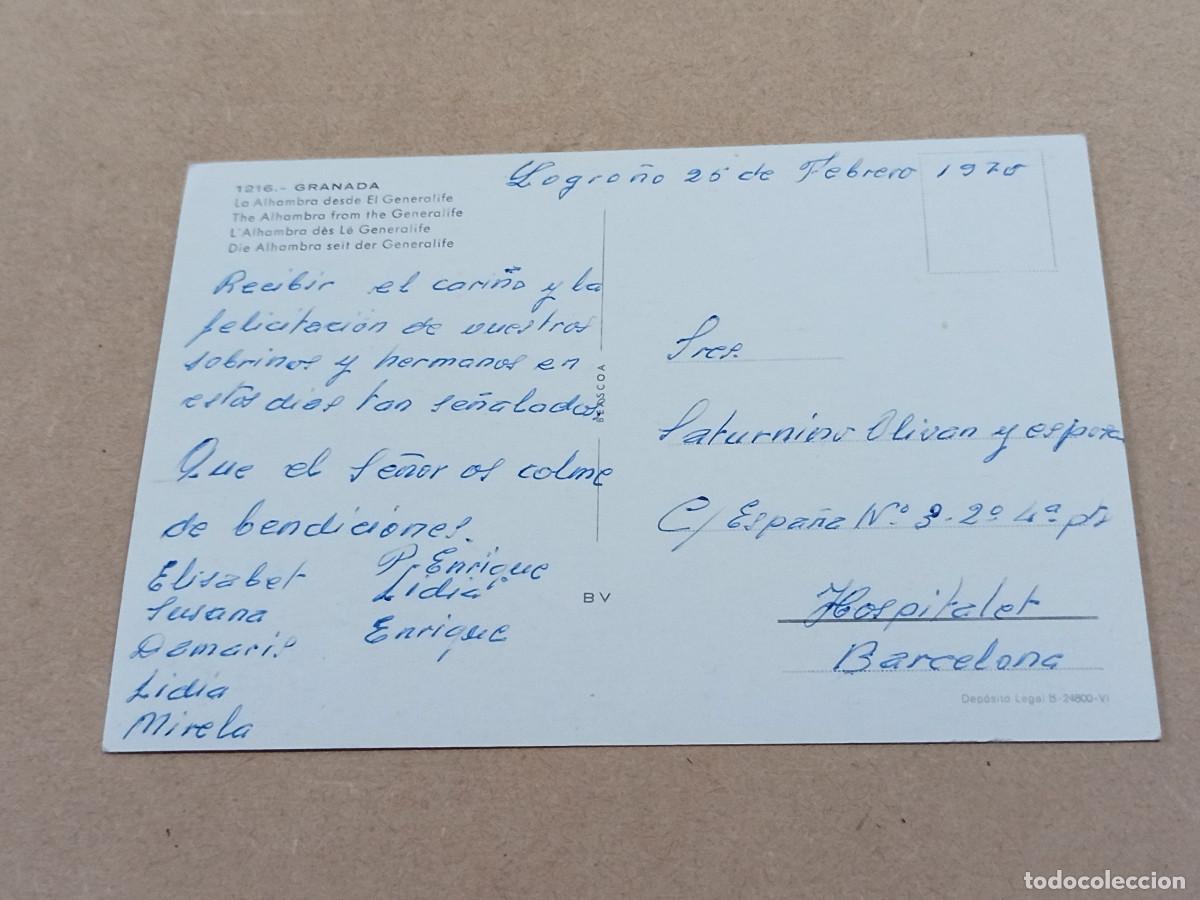 1216.- GRANADA
La Alhambra desde El Generalife
The Alhambra from the Generalife
L'Alhambra dès Lé Generalife
Die Alhambra seit der Generalife
Logroño 25 de Febrero 1970
Recibir el cariño y la
felicitación de vuestros
sobrinos y hermanos en
estos dias tan señalados.
Que el Señor os colme
de bendiciones.
Elisabet
Susana
Damaris
Lidia
Mirela
P. Enrique
Lidia
Enrique
BEASCOA
BV
Sres.
Saturnino Olivan y esposa
C/ España Nº 3-2º 4ª
Hospitalet
Barcelona
Depósito Legal B-24800-VI
todocoleccion